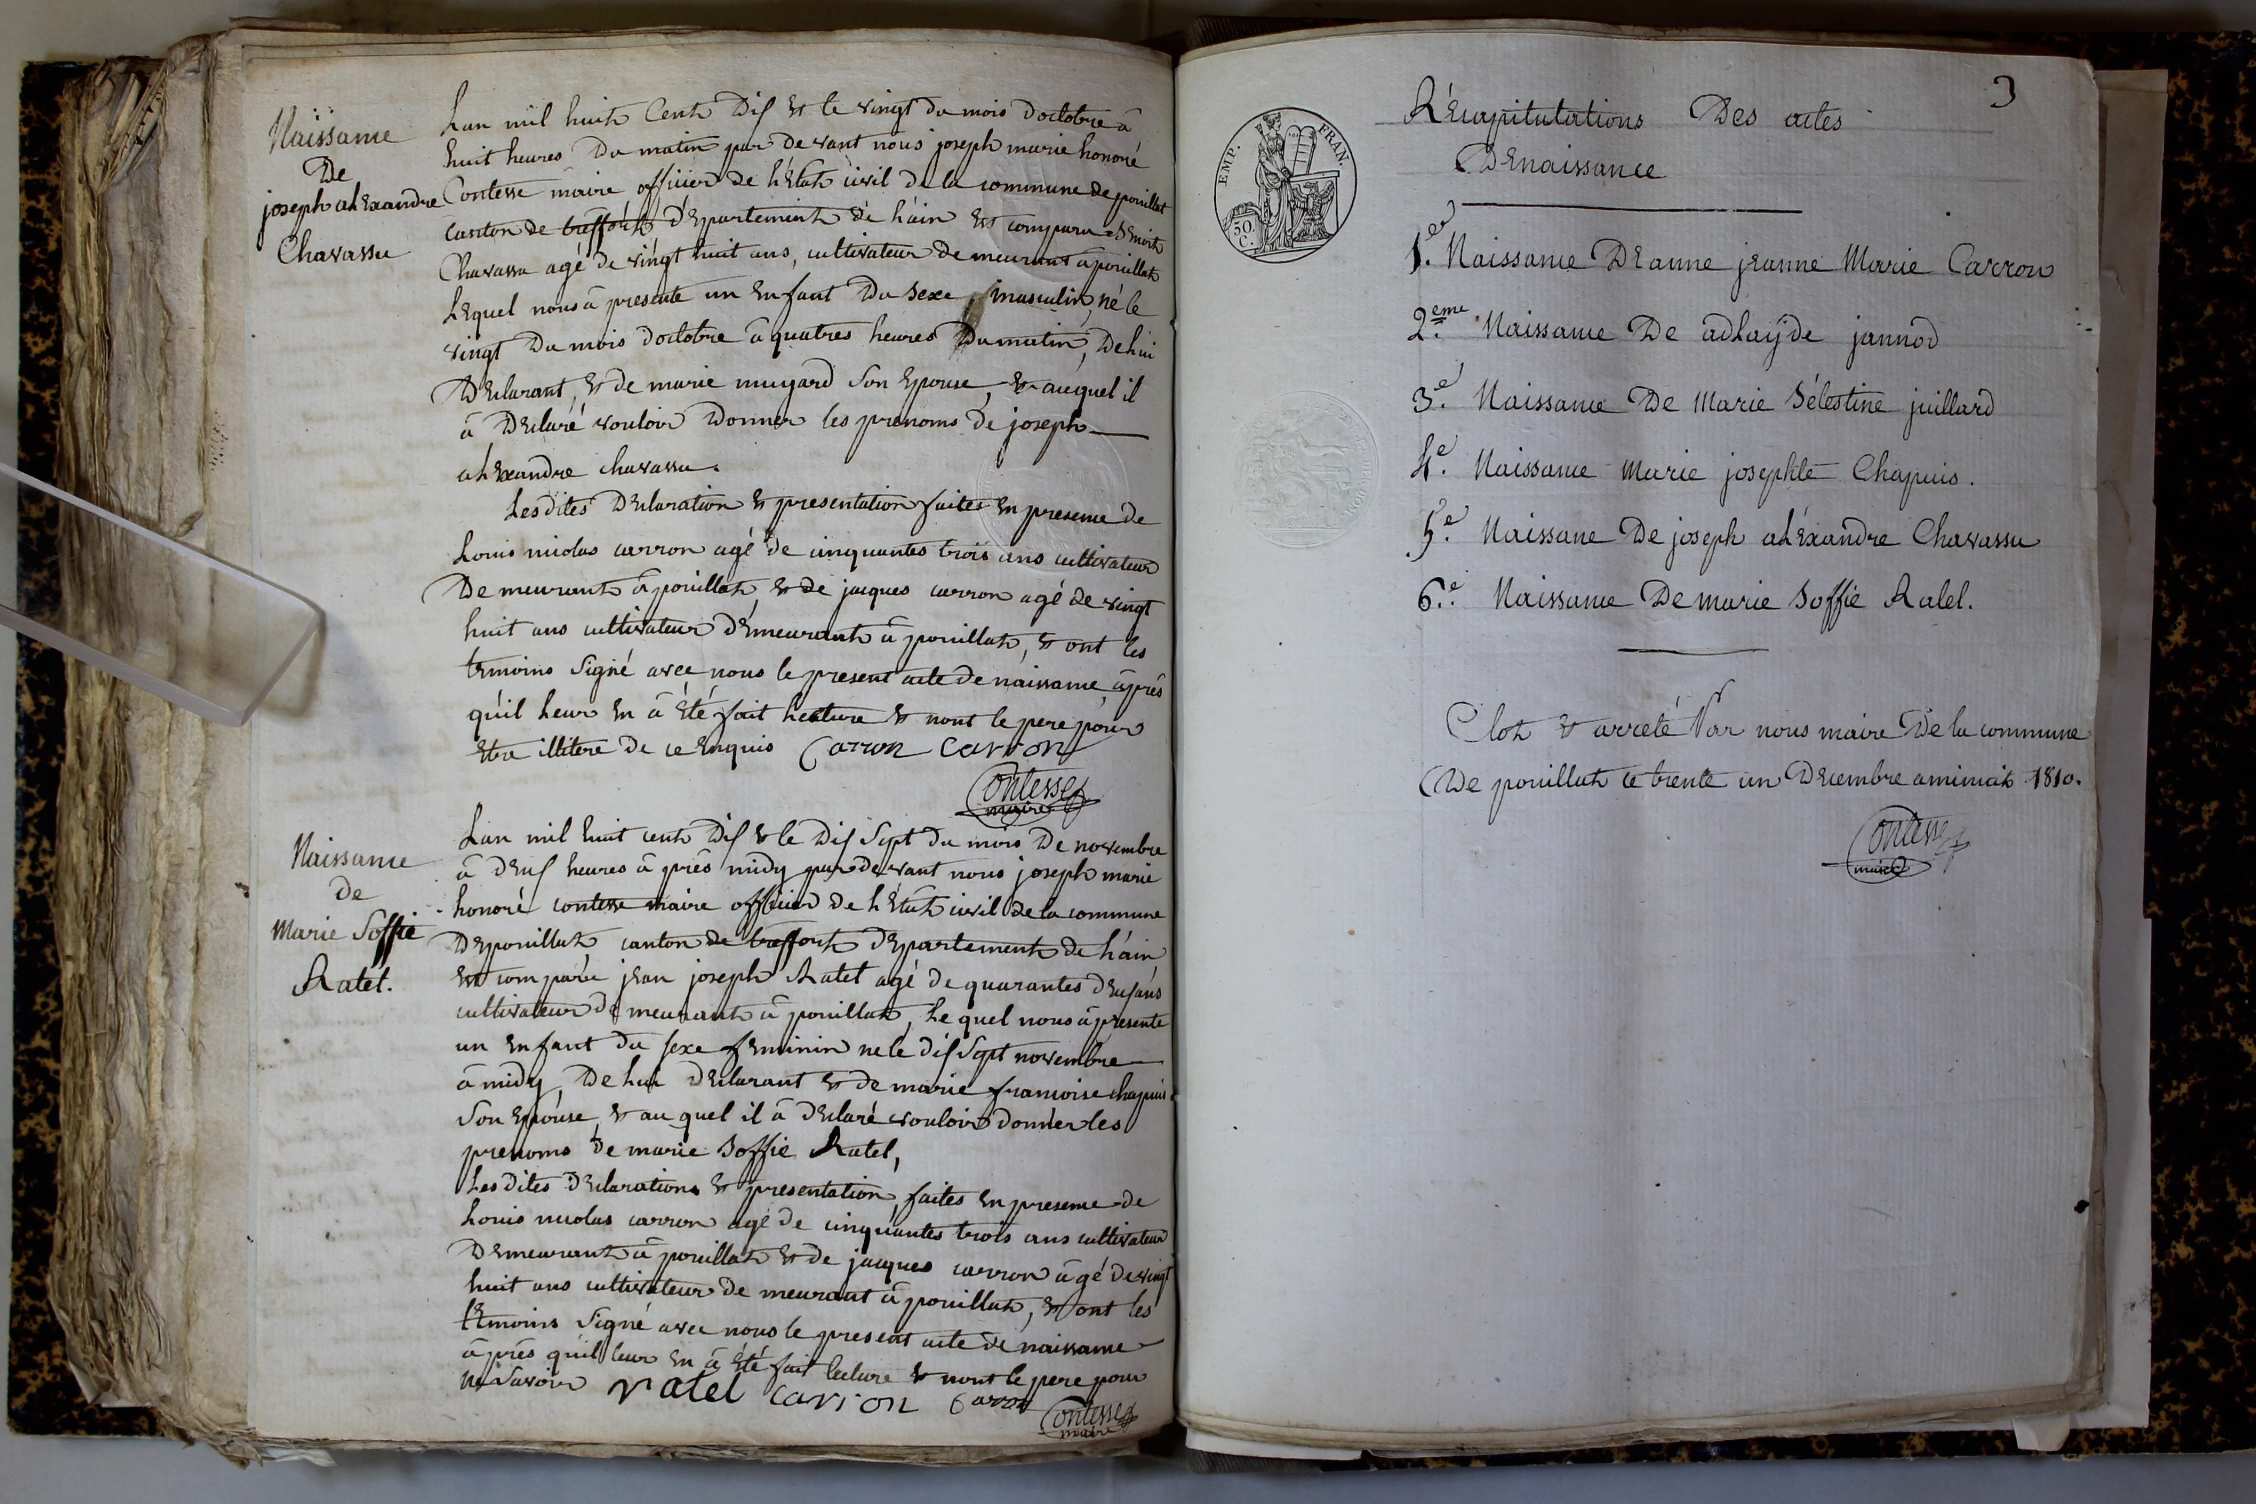 Naissame
De
joseph alExandre
Chavassu
Lan mil huit Cent Dis Et le vingt du mois doctobre â
huit heures Du matin par de vant nous joseph marie honoré
Contesse maire officier de l'Etat civil de la commune de pouillat
canton de treffort dEpartement de l'ain Est comparu
Chavassu agé de vingt huit ans, cultivateur de meurant â pouillat
LEquel nous â presenté un Enfant Du sexe masculin, né le
vingt Du mois doctobre â quatres heures Du matin, De lui
DEclarant, Et de marie mugard son Epouse, Et auquel il
â DEclaré vouloir Donner les prenoms de joseph
alExandre chavassu.
Lesdites DEclaration Et presentation faites En presence de
Louis nicolas carron agé de cinquantes trois ans cultivateur
De meurant â pouillat, Et de jacques carron agé de vingt
huit ans cultivateur dEmeurant â pouillat, Et ont les
tEmoins signé avec nous le present acte de naissance âprés
qu'il leur En â Eté fait lecture Et nont le pere pour
Etre illitere de ce Enquis Carron carron
Contesse
maire
Naissame
de
Marie Soffie
Ratel.
Lan mil huit cent Dis Et le Dis Sept du mois De novembre
â dEus heures â prés midy par de vant nous joseph marie
honoré contesse maire officier de l'Etat civil de la commune
De pouillat canton de treffort dEpartement de l'ain
Est comparu jEan joseph Ratel agé de quarantes dEus ans
cultivateur de meurant â pouillat, Le quel nous â presenté
un Enfant du sexe feminin né le dis Sept novembre
â midy, De lui dEclarant Et de marie francoise chapuis
son Epouse, Et au quel il â dEclaré vouloir donner les
prenoms de marie soffie Ratel,
Les dites dEclarations Et presentation, faites En presence de
Louis nicolas carron agé de cinquantes trois ans cultivateur
DEmeurant â pouillat Et de jacques carron âgé de vingt
huit ans cultivateur de meurant â pouillat, Et ont les
tEmoins signé avec nous le present acte de naissame
â prés qu'il leur En â Eté fait lecture Et nont le pere pour
ne savoir ratel carron Carron
Contesse
maire
3
EMP. FRAN.
50 C.
REcapitulations Des actes
DEnaissance
1.er Naissame DEanne jeanne Marie Carron
2.eme Naissame De adlaÿde jannod
3.e Naissance De Marie Sélestine juillard
4.e Naissame Marie josephte Chapuis.
5.e Naissane De joseph alExandre Chavassu
6.e Naissame De marie Soffie Ratel.
Clot Et arreté Par nous maire De la commune
De pouillat ce trente un DEcembre aminuit 1810.
Contesse
maire